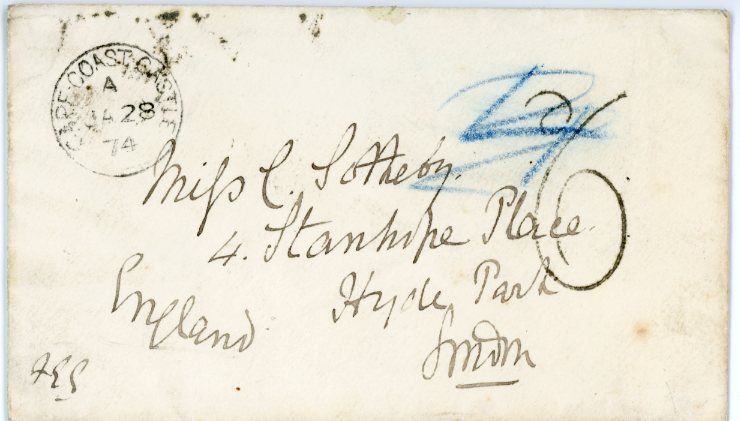 CAPE·COAST·CASTLE
A
JA 28
74
6
Miss C. Sotheby.
4. Stanhope Place.
Hyde Park
London
England